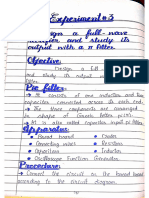 Experiment #3
Design a full wave
rectifier and study its
output with a π filter.
Objective:
Design a full
and study its output
Pie filter:
It consists of one inductor and two
capacitor connected across its each end.
The three components are arranged
in shape of Greek letter pi(π).
It is also called capacitor input π filter.
Apparatus:
Bread board
Diodes
Connecting wires
Resistors
Capacitors
Inductor
Oscilloscope Function Generator
Procedure:
Connect the circuit on the bread board
according to the circuit diagram.